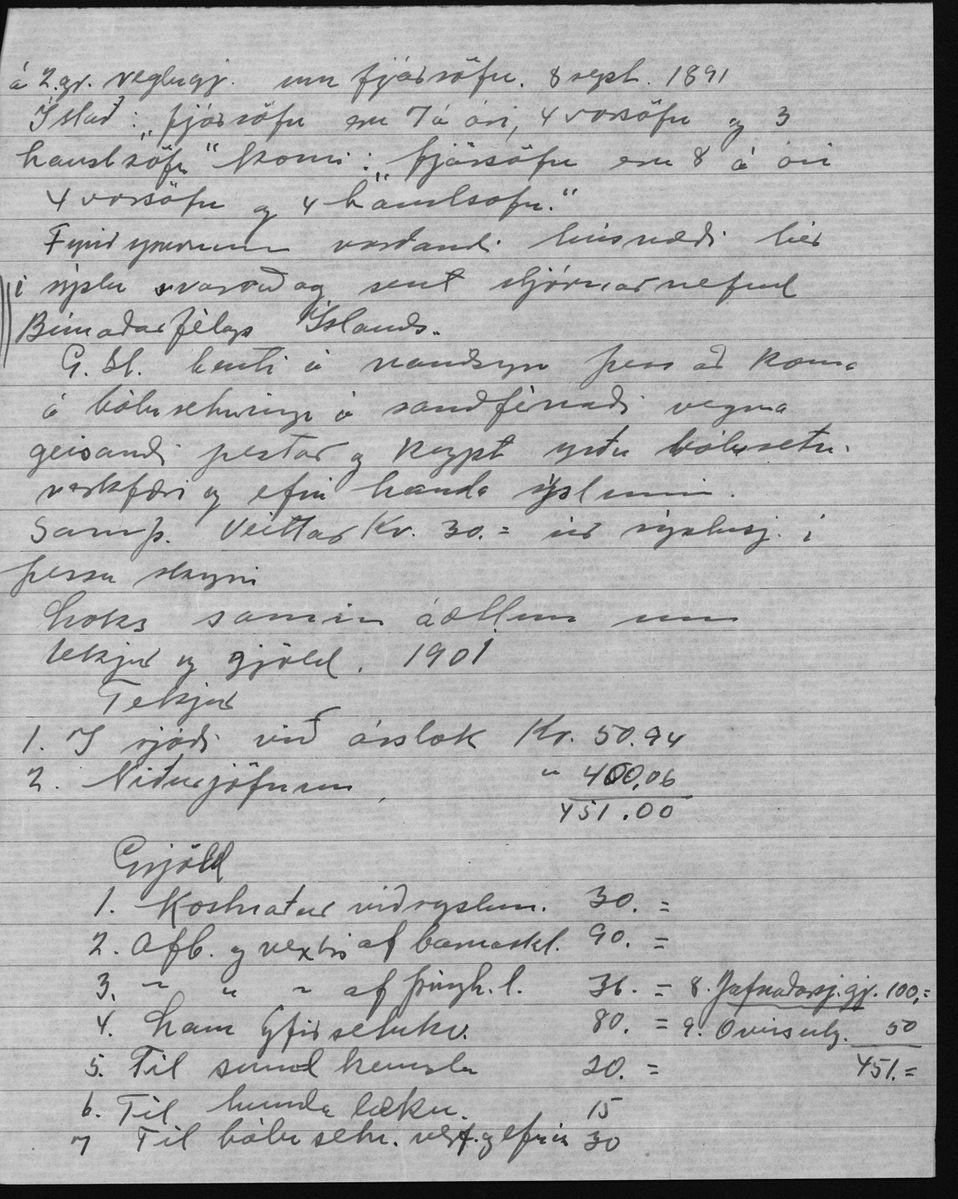 á 2. gr. reglugj. um fjársöfn. 8 sept. 1891
Í stað: „fjársöfn eru 7 á ári, 4 vorsöfn og 3
haustsöfn“ komi: „fjársöfn eru 8 á ári
4 vorsöfn og 4 haustsöfn.“
Fyrirspurnum varðandi búsnæði hér
í sýslu svarað og sent stjórnarnefnd
Búnaðarfélags Íslands.
G. Sl. benti á nauðsyn þess að koma
á bólusetningu á sauðfénaði vegna
geisandi pestar og keypt yrðu bólusetn.
verkfæri og efni handa sýslunni.
Samþ. Veittar Kr. 30.= úr sýslusj. í
þessu skyni
Loks samin áætlun um
tekjur og gjöld. 1901
Tekjur
1. Í sjóði við árslok Kr. 50.94
2. Niðurjöfnun „ 400.06
451.00
Gjöld
1. Kostnaður við sýslun. 30. =
2. Afb. og vextir af barnaskl. 90. =
3. „ „ „ af þingh. l. 36. = 8. Jafnaðarsj. gj. 100,=
4. Laun yfirsetukv. 80. = 9. Óvissulg. 50
5. Til sundkenslu 20. = 451.=
6. Til hundalækn. 15
7 Til bólusetn. verkf. og efnis 30